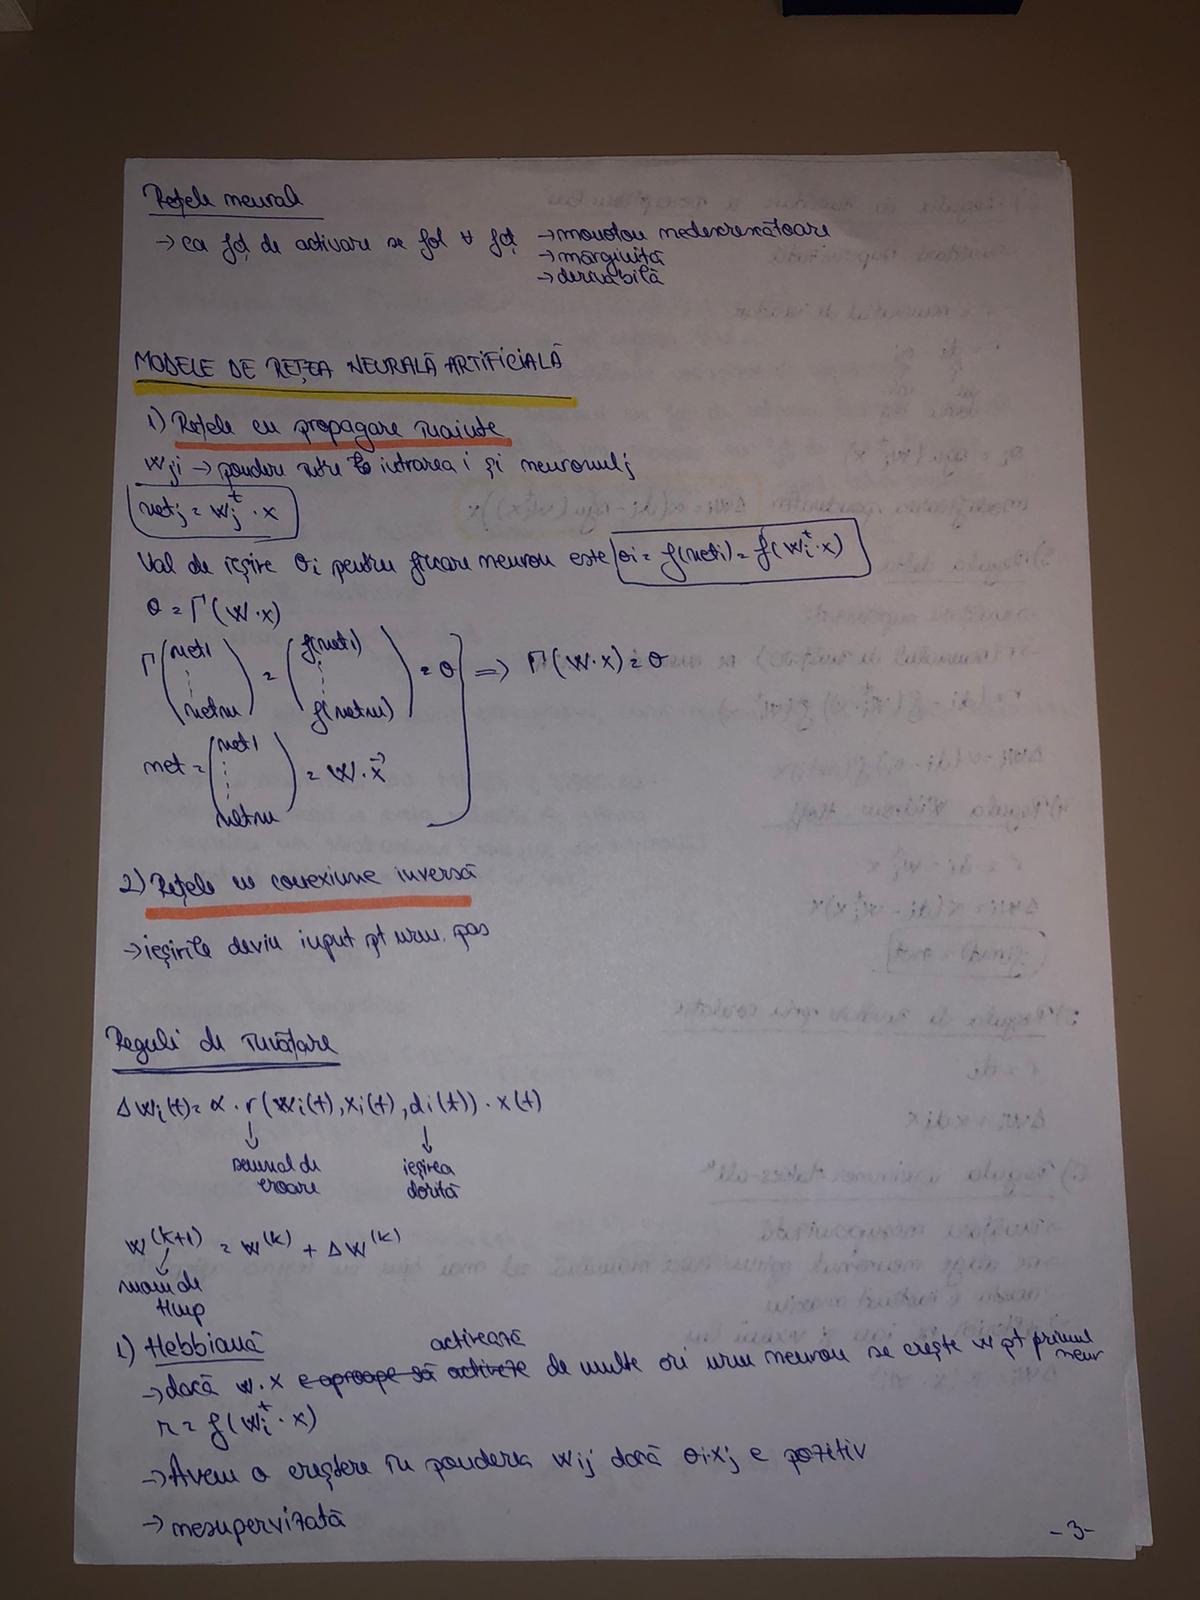 Rețele neurale
→ ca fcț de activare se fol ∀ fcț → monoton nedescrescătoare
→ mărginită
→ derivabilă
MODELE DE REȚEA NEURALĂ ARTIFICIALĂ
1) Rețele cu propagare înainte
wji → pondere între intrarea i și neuronul j
netj = wj^t · x
Val de ieșire θi pentru fiecare neuron este θi = f(neti) = f(wi^t · x)
θ = Γ(W · x)
Γ(net1 ⋮ netm) = (f(net1) ⋮ f(netm)) = θ => Γ(W · x) = θ
net = (net1 ⋮ netm) = W · x⃗
2) Rețele cu conexiune inversă
→ ieșirile devin input pt urm. pas
Reguli de învățare
Δwi(t) = α · r(wi(t), xi(t), di(t)) · x(t)
↓ ↓
semnal de ieșirea
eroare dorită
w^(k+1) = w^(k) + Δw^(k)
mom de
timp
1) Hebbiană
activează
→ dacă w·x e aproape să activeze de multe ori urm neuron se crește w pt primul
neur
r = f(wi^t · x)
→ Avem o creștere în ponderea wij dacă θixj e pozitiv
→ nesupervizată
-3-